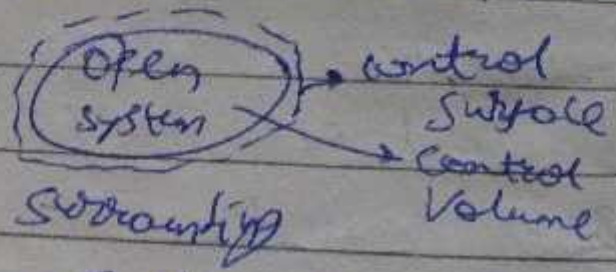 Open
system
control
surface
control
Volume
surrounding